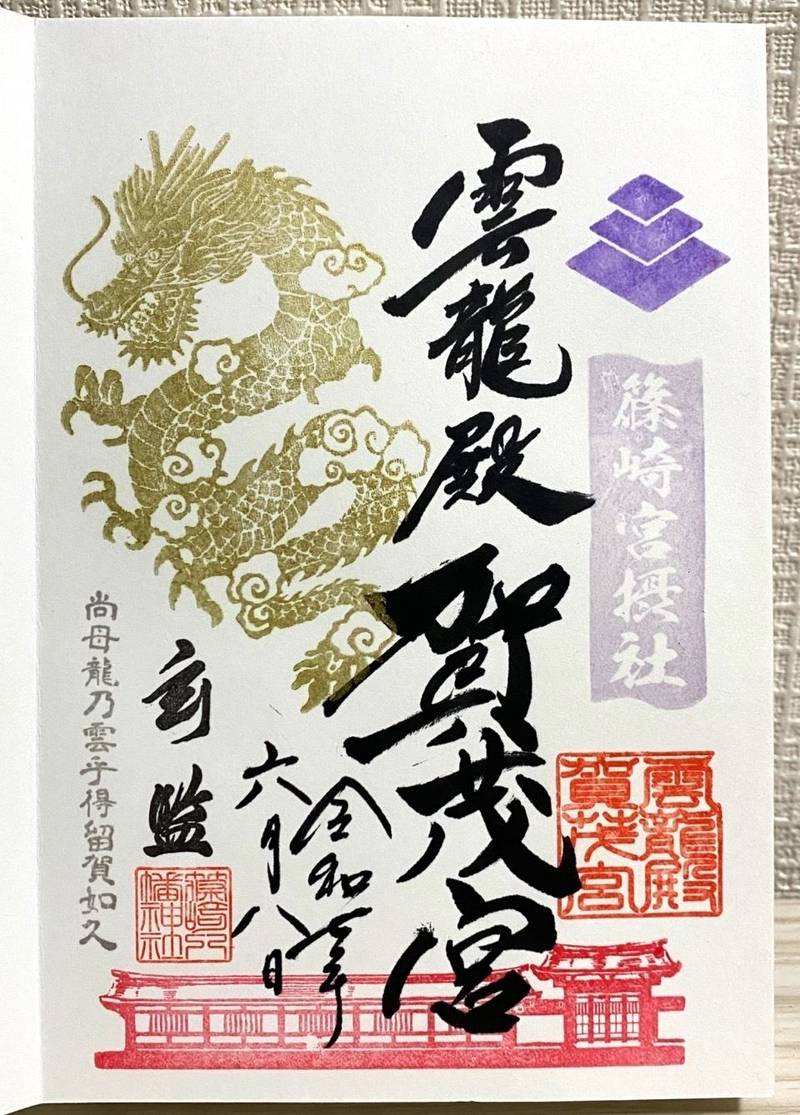 篠崎宮摂社
雲龍殿
賀茂宮
雲龍殿 賀茂宮
令和七年
六月八日
玄監
篠崎八
幡神社
尚母龍乃雲乎得留賀如久